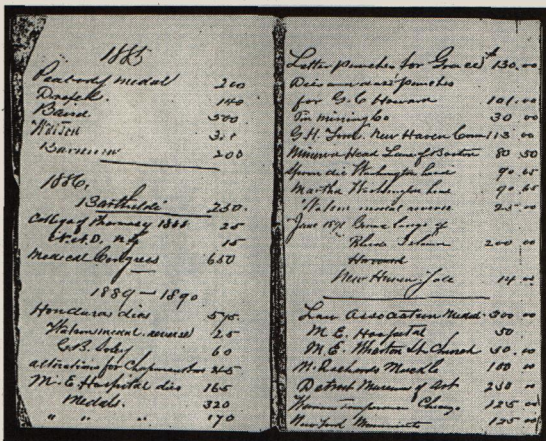 1885
Peabody medal 200
Drexel. 140
Band 500
Watson
Barnum 200
1886,
Bartholdi 250.
College of Pharmacy 1868 25
N.Y. 15
Medical Congress 650
1889 – 1890
Honduras dies 575.
Watson medal. reverse 25
60
alterations for Chapman 45
M. E. Hospital die 165
Medals. 320
" " " 170
Letter punches for 130.00
punches
for G. C. Howard 101.00
Tin mining Co 30 00
G. H. Ford. New Haven Conn 113 00
Minerva Head Lane of Boston 80 50
die Washington Lane 90.65
Martha Washington Lane 90.65
Watson medal reverse 25.00
June 1891
Rhode Island 200 00
Harvard
New Haven Yale 14 00
Law Association Medal 300 00
M. E. Hospital 50
M. E. Wharton St Church 50.00
M. Richards Muckle 100 00
Detroit Museum of Art 250 00
Womans Temperance Chicago 125 00
New York 125 00